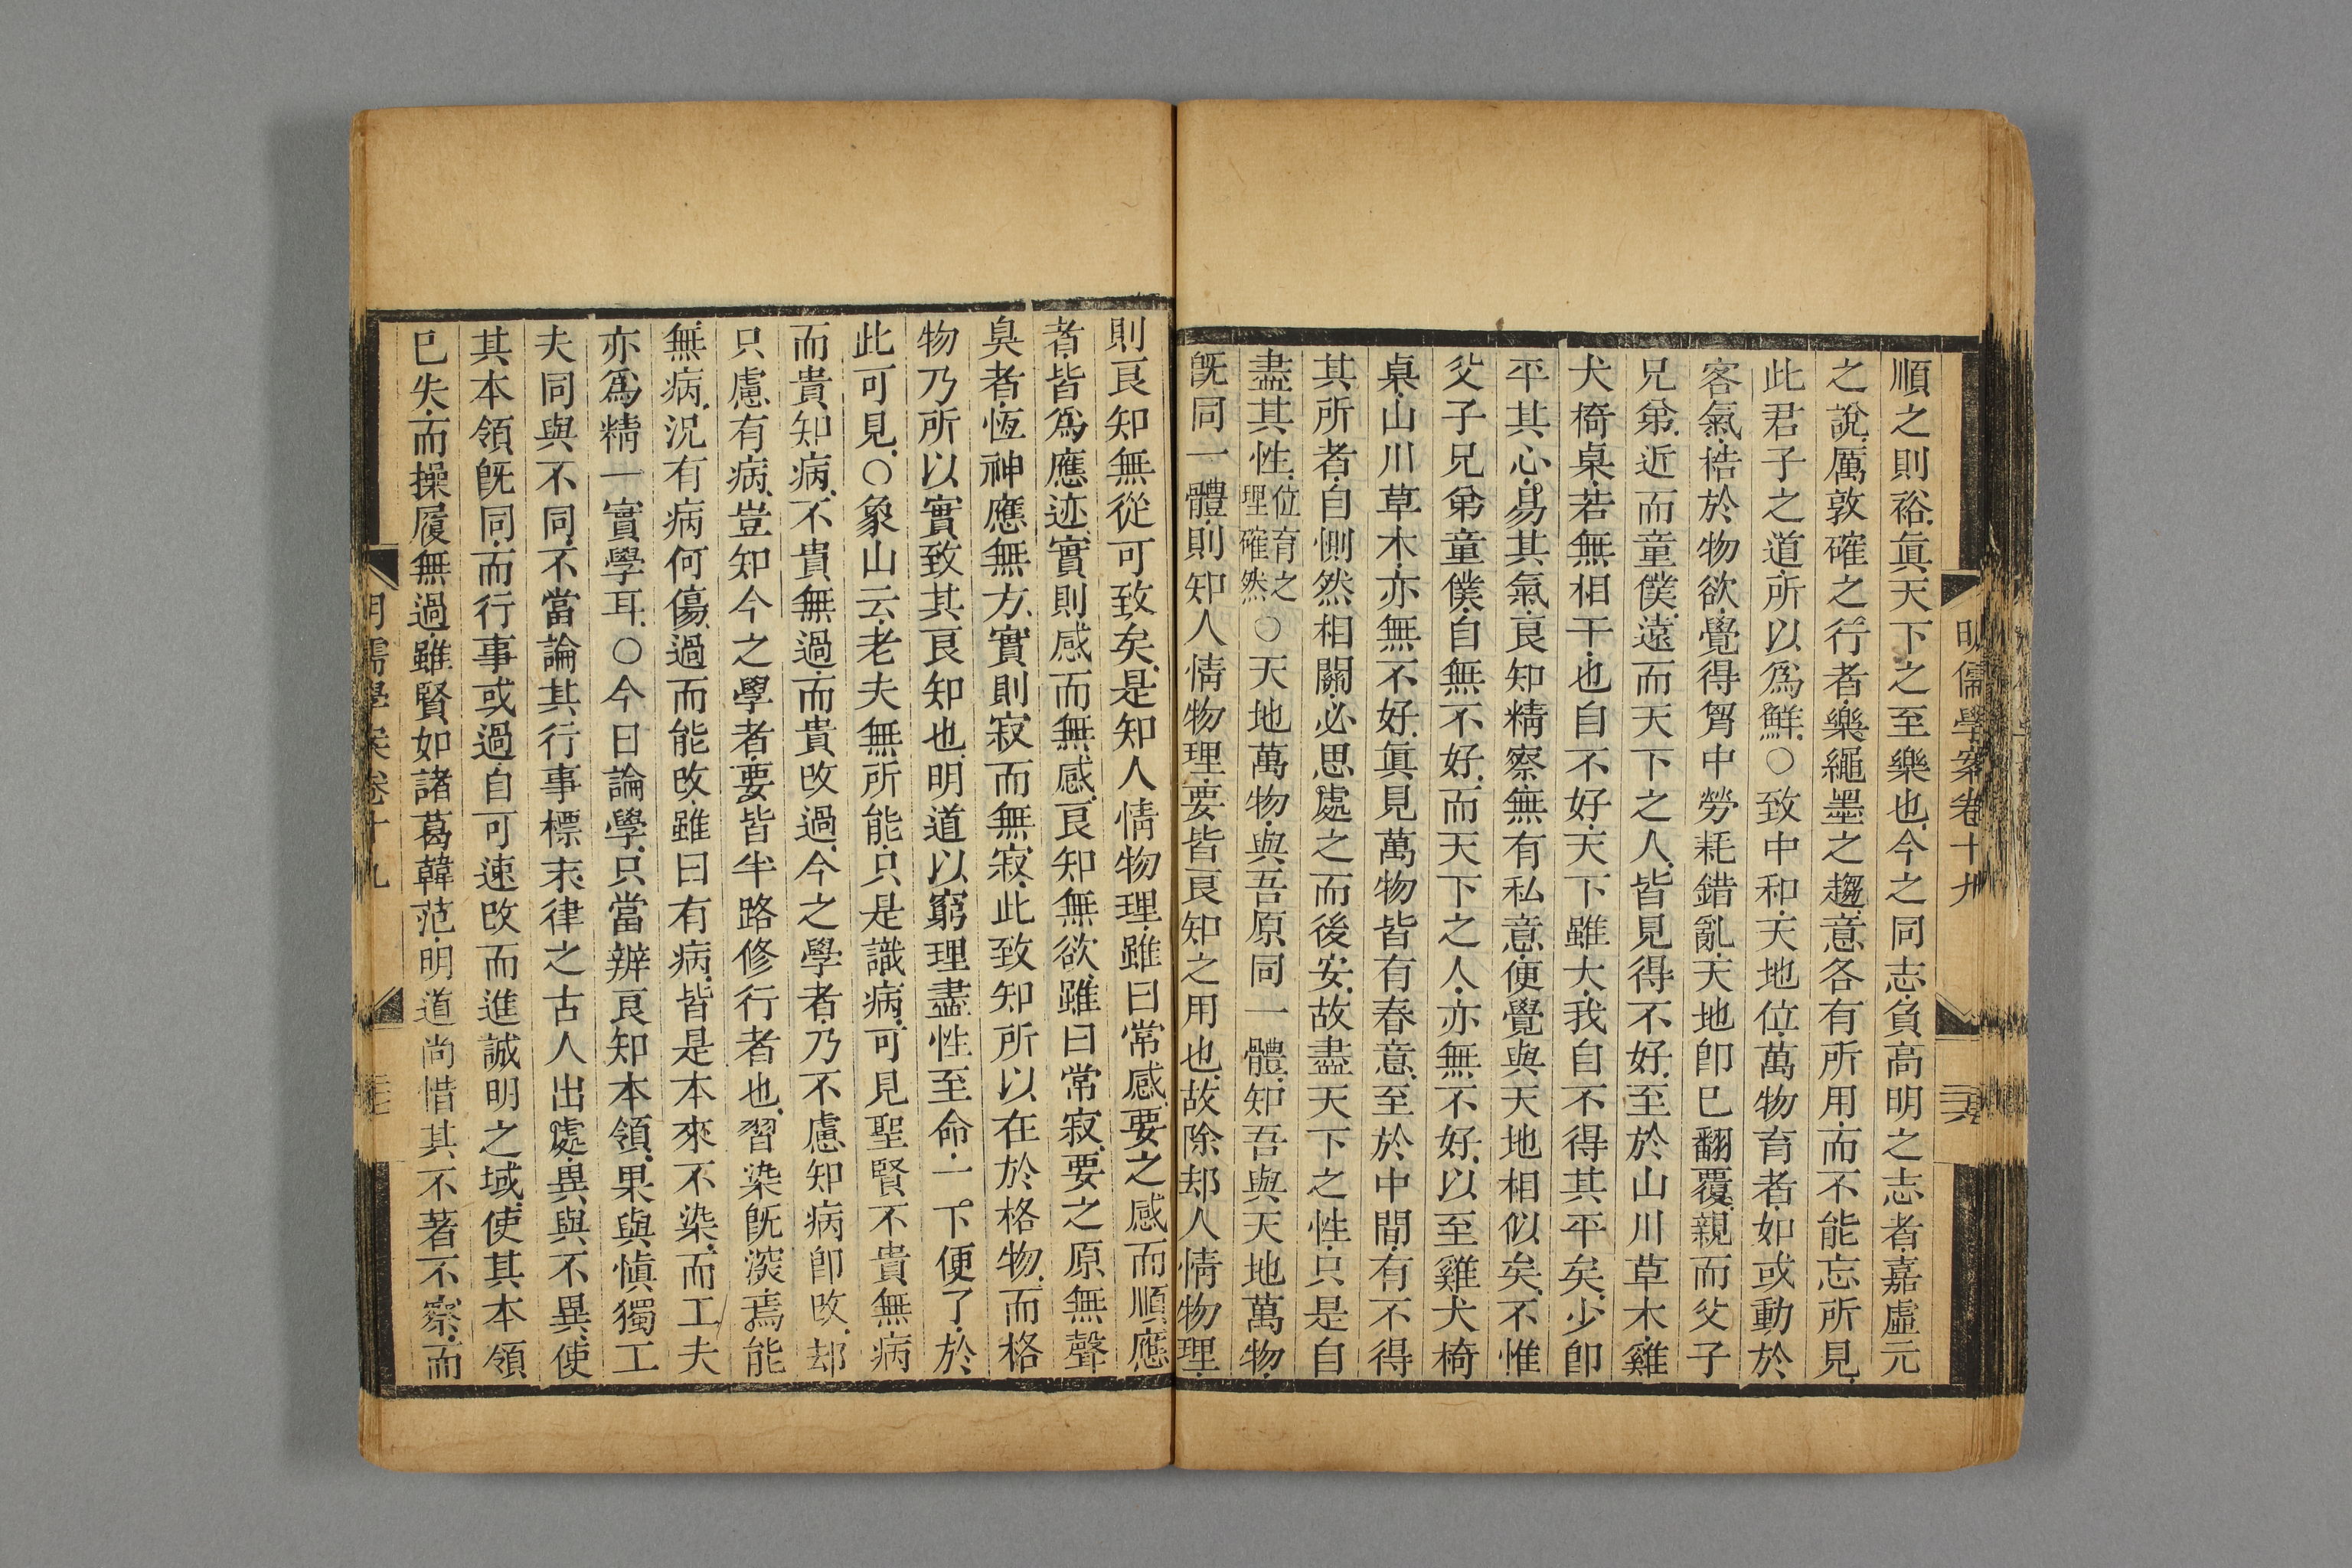 明儒學案卷十九
順之則裕眞天下之至樂也今之同志負高明之志者嘉虛元
之說厲敦確之行者樂繩墨之趨意各有所用而不能忘所見
此君子之道所以爲鮮○致中和天地位萬物育者如或動於
客氣梏於物欲覺得胷中勞耗錯亂天地卽已翻覆親而父子
兄弟近而童僕遠而天下之人皆見得不好至於山川草木雞
犬椅桌若無相干也自不好天下雖大我自不得其平矣少卽
平其心易其氣良知精察無有私意便覺與天地相似矣不惟
父子兄弟童僕自無不好而天下之人亦無不好以至雞犬椅
桌山川草木亦無不好眞見萬物皆有春意至於中間有不得
其所者自惻然相關必思處之而後安故盡天下之性只是自
盡其性位育之理確然○天地萬物與吾原同一體知吾與天地萬物
旣同一體則知人情物理要皆良知之用也故除却人情物理
則良知無從可致矣是知人情物理雖曰常感要之感而順應
者皆爲應迹實則感而無感良知無欲雖曰常寂要之原無聲
臭者恆神應無方實則寂而無寂此致知所以在於格物而格
物乃所以實致其良知也明道以窮理盡性至命一下便了於
此可見○象山云老夫無所能只是識病可見聖賢不貴無病
而貴知病不貴無過而貴改過今之學者乃不慮知病卽改却
只慮有病豈知今之學者要皆半路修行者也習染旣深焉能
無病況有病何傷過而能改雖曰有病皆是本來不染而工夫
亦爲精一實學耳○今日論學只當辨良知本領果與愼獨工
夫同與不同不當論其行事標末律之古人出處異與不異使
其本領旣同而行事或過自可速改而進誠明之域使其本領
已失而操履無過雖賢如諸葛韓范明道尚惜其不著不察而
明儒學案卷十九